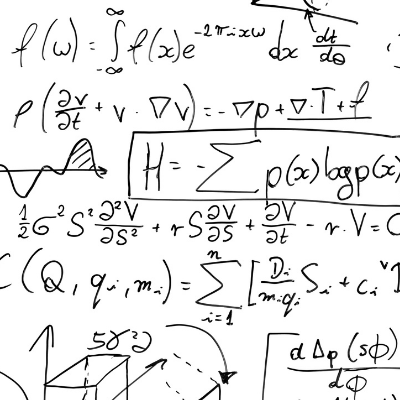 f(ω) = ∫_{-∞}^{∞} f(x)e^{-2πixω} dx dt/dθ
ρ(∂v/∂t + v · ∇v) = -∇p + ∇·T + f
H = -∑ p(x) log p(x)
1/2 σ² S² ∂²V/∂S² + r S ∂V/∂S + ∂V/∂t - r · V = 0
C(Q, q_i, m_i) = ∑_{i=1}^{n} [D_i/(m_i q_i) S_i + c_i
5∂²∂
d Δp (sϕ)/dϕ